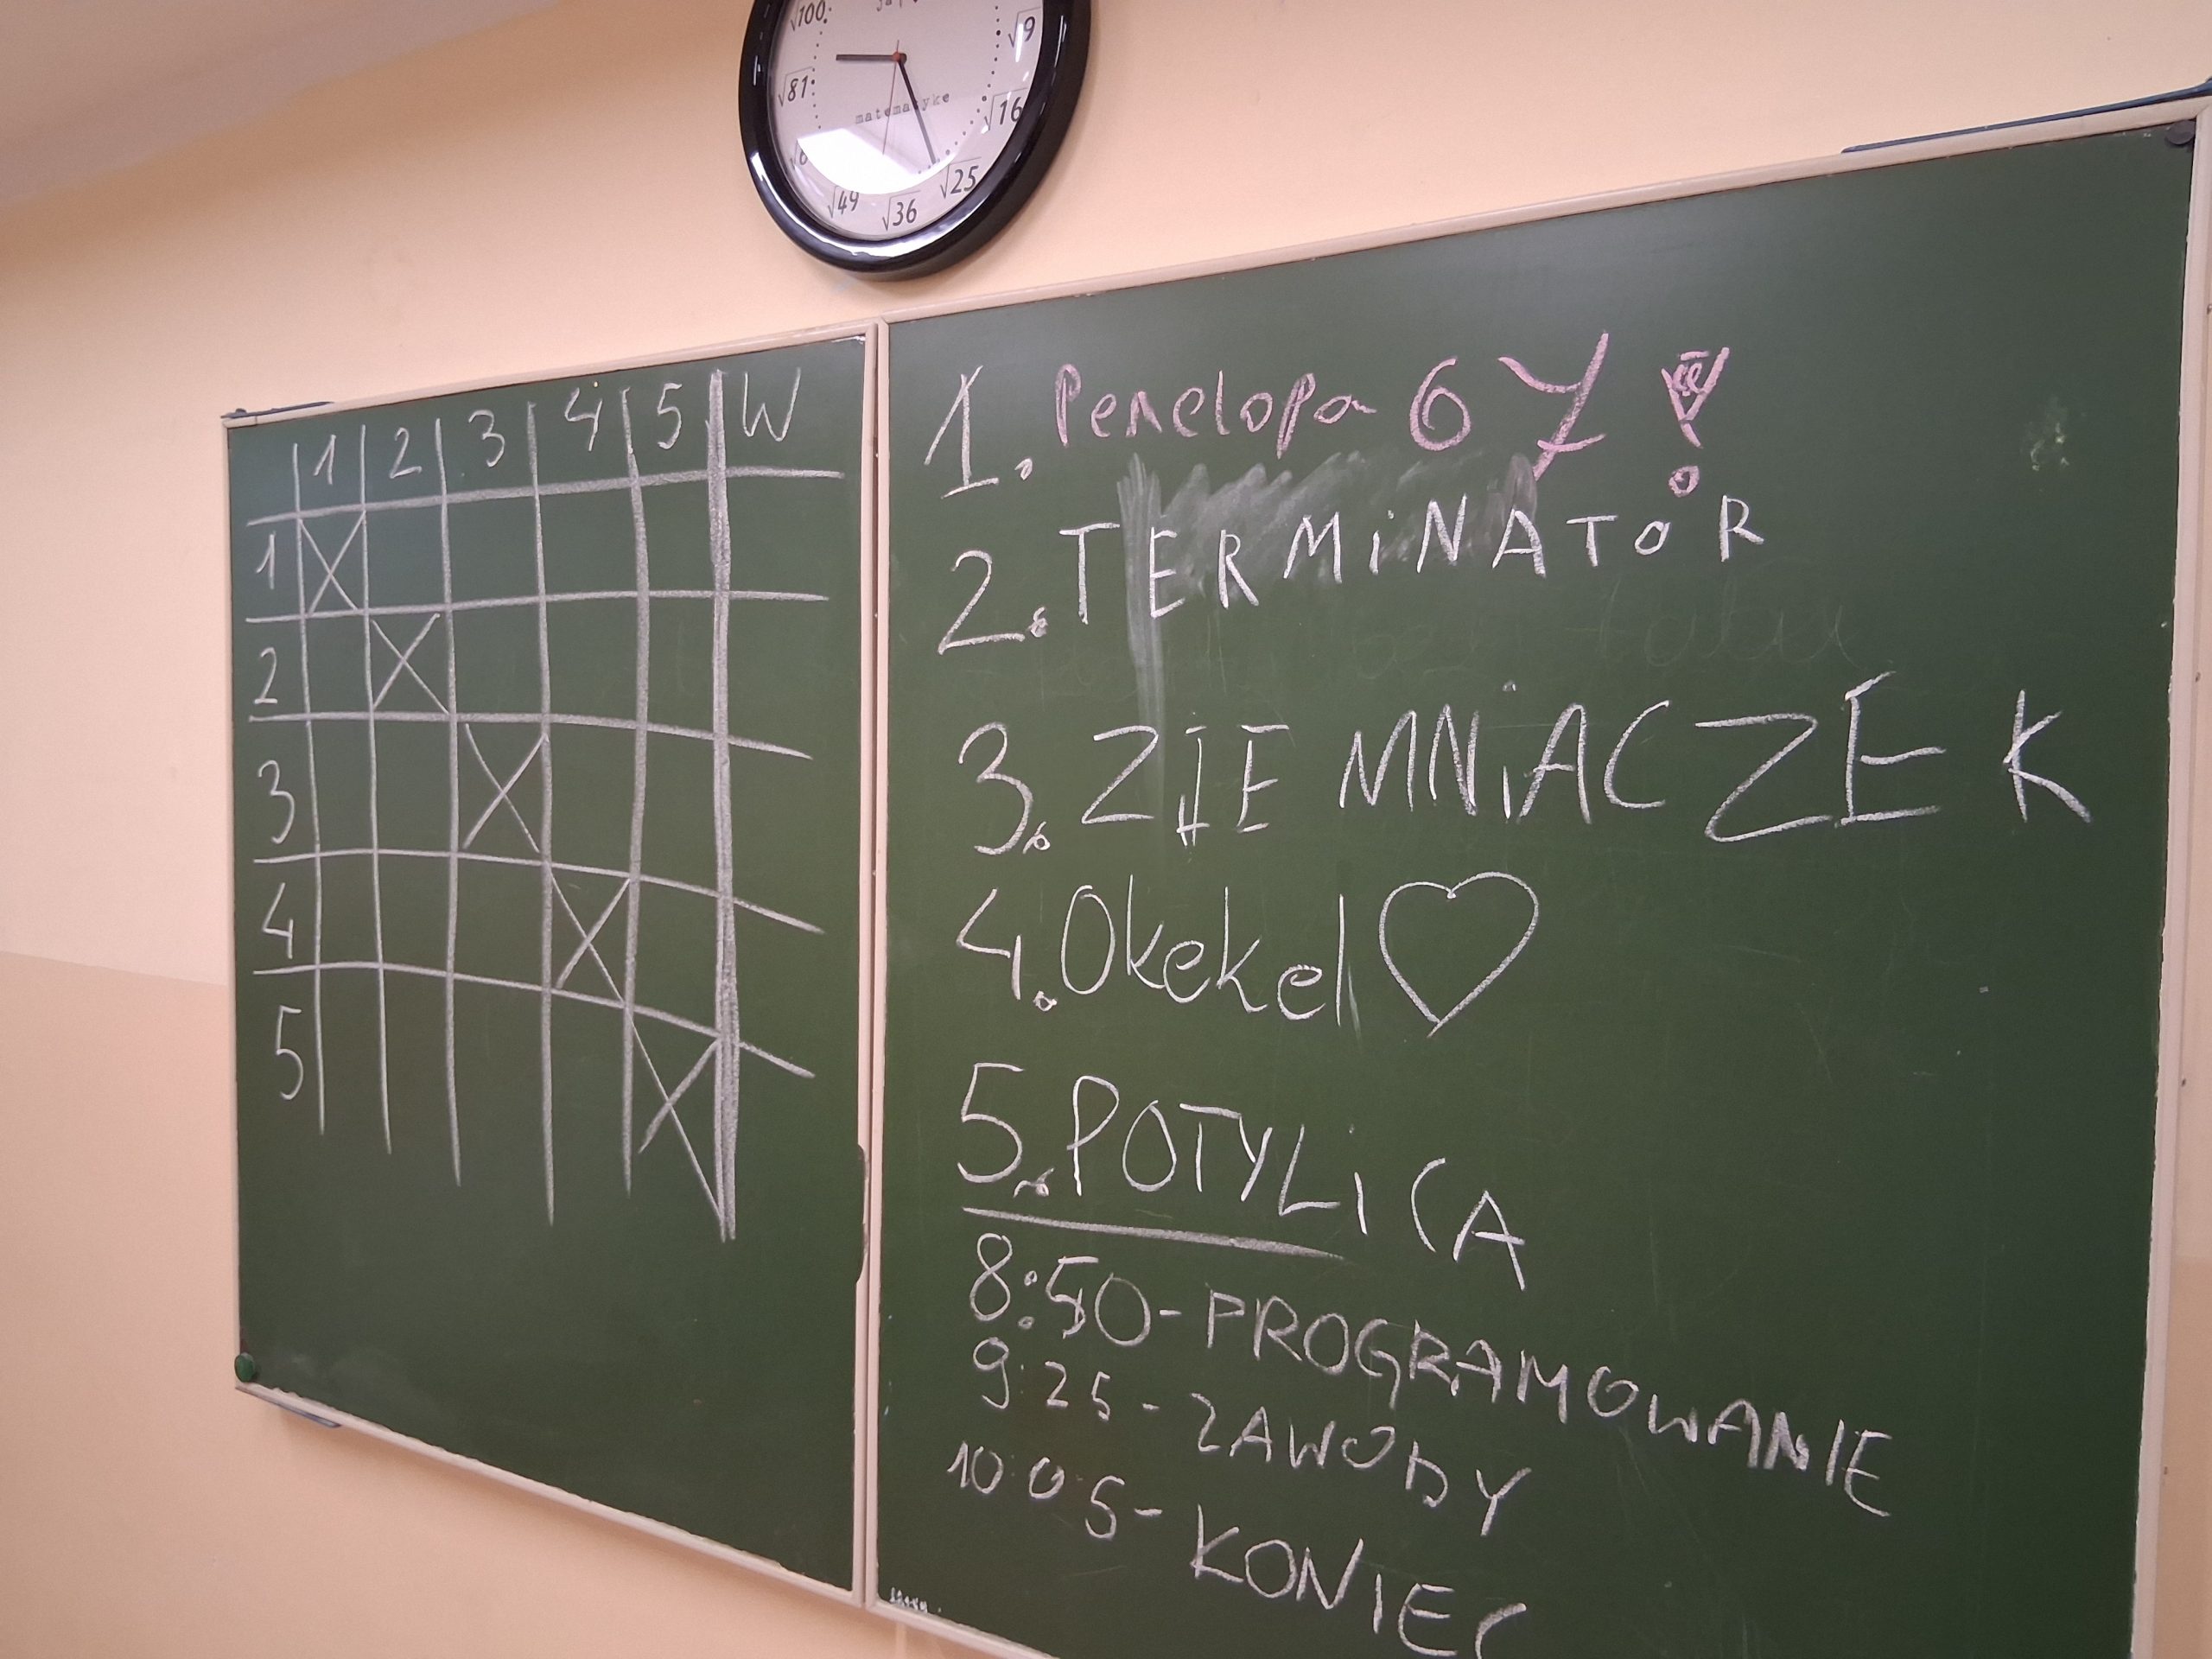 √100
√9
√81
matematyke
√16
√25
√49
√36
1 2 3 4 5 W
1
2
3
4
5
1. Penelopa 67!
2. TERMiNATOR
3. ZIEMNiACZEK
4. Okekel ♡
5. POTYLiCA
8:50-PROGRAMOWANIE
9:25-ZAWODY
10:05-KONIEC